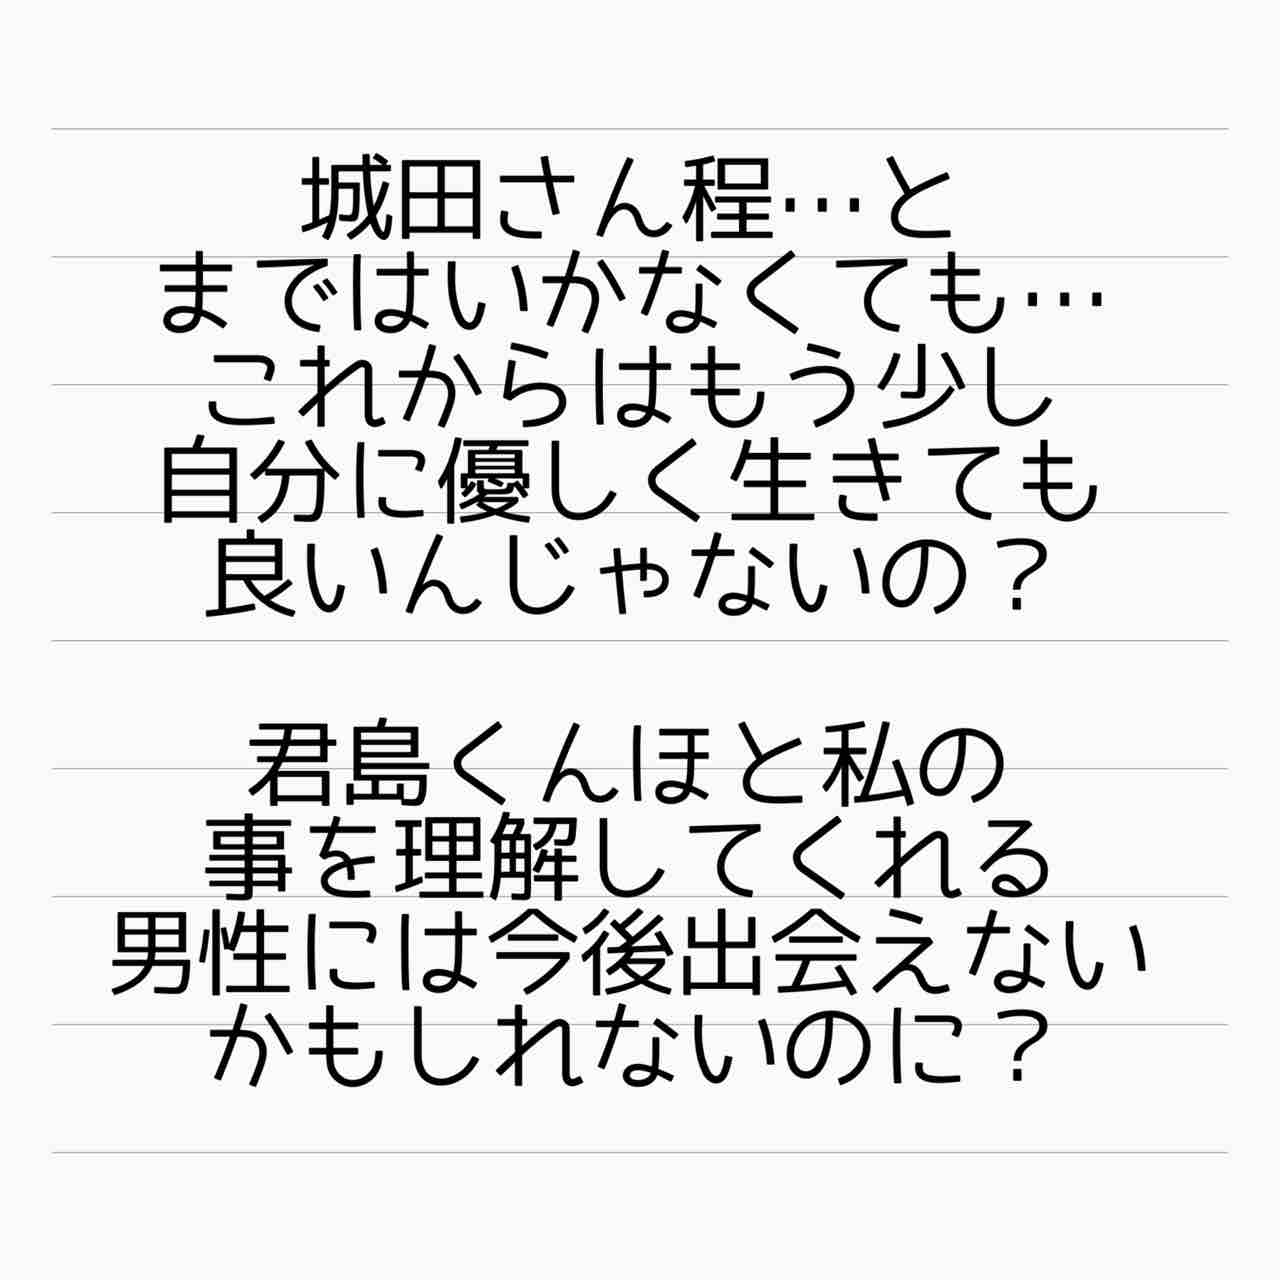 城田さん程…と
まではいかなくても…
これからはもう少し
自分に優しく生きても
良いんじゃないの？
君島くんほと私の
事を理解してくれる
男性には今後出会えない
かもしれないのに？